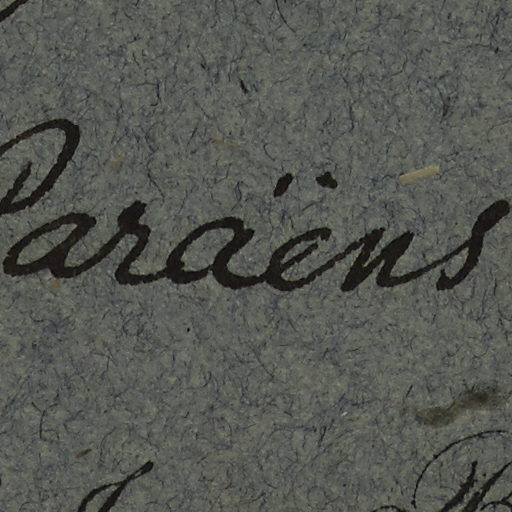 Paraëns